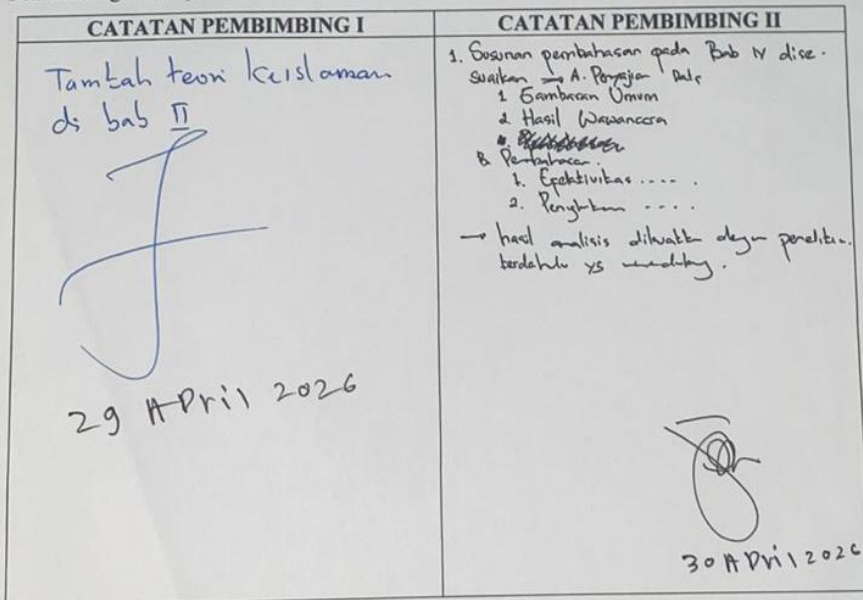 CATATAN PEMBIMBING I
Tambah teori keislaman
di bab II
29 APril 2026
CATATAN PEMBIMBING II
1. Susunan pembahasan pada Bab IV dise-
suaikan → A. Penyajian Data
1 Gambaran Umum
2 Hasil Wawancara
B Pembahasan.
1. Efektivitas ....
2. ....
→ hasil analisis dikuatkan dengan penelitian
terdahulu yg mendukung.
30 APril 2026